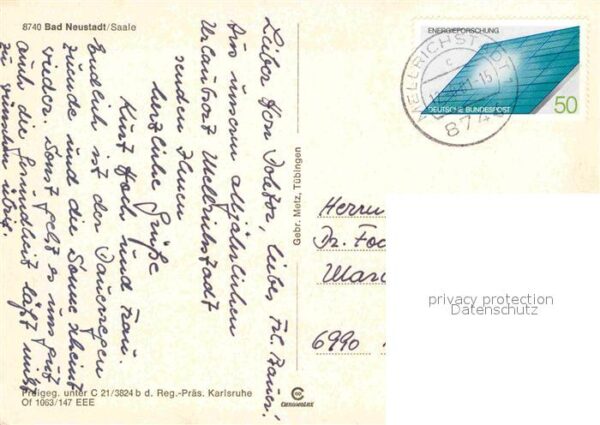 8740 Bad Neustadt/Saale
Lieber Herr Doktor, liebes Frl. Bauer!
Aus unserem alljährlichen
Urlaubsort Mellrichstadt
senden Ihnen
herzliche Grüße
Kurt Hoch und Frau.
Endlich ist der Dauerregen
zuende und die Sonne scheint
wieder. Sonst geht es uns gut
auch die Gesundheit läßt nichts
zu wünschen übrig.
Gebr. Metz, Tübingen
ENERGIEFORSCHUNG
DEUTSCHE BUNDESPOST
50
MELLRICHSTADT
8744
Herrn
Dr. Foc
6990
privacy protection
Datenschutz
Freigeg. unter C 21/3824 b d. Reg.-Präs. Karlsruhe
Of 1063/147 EEE